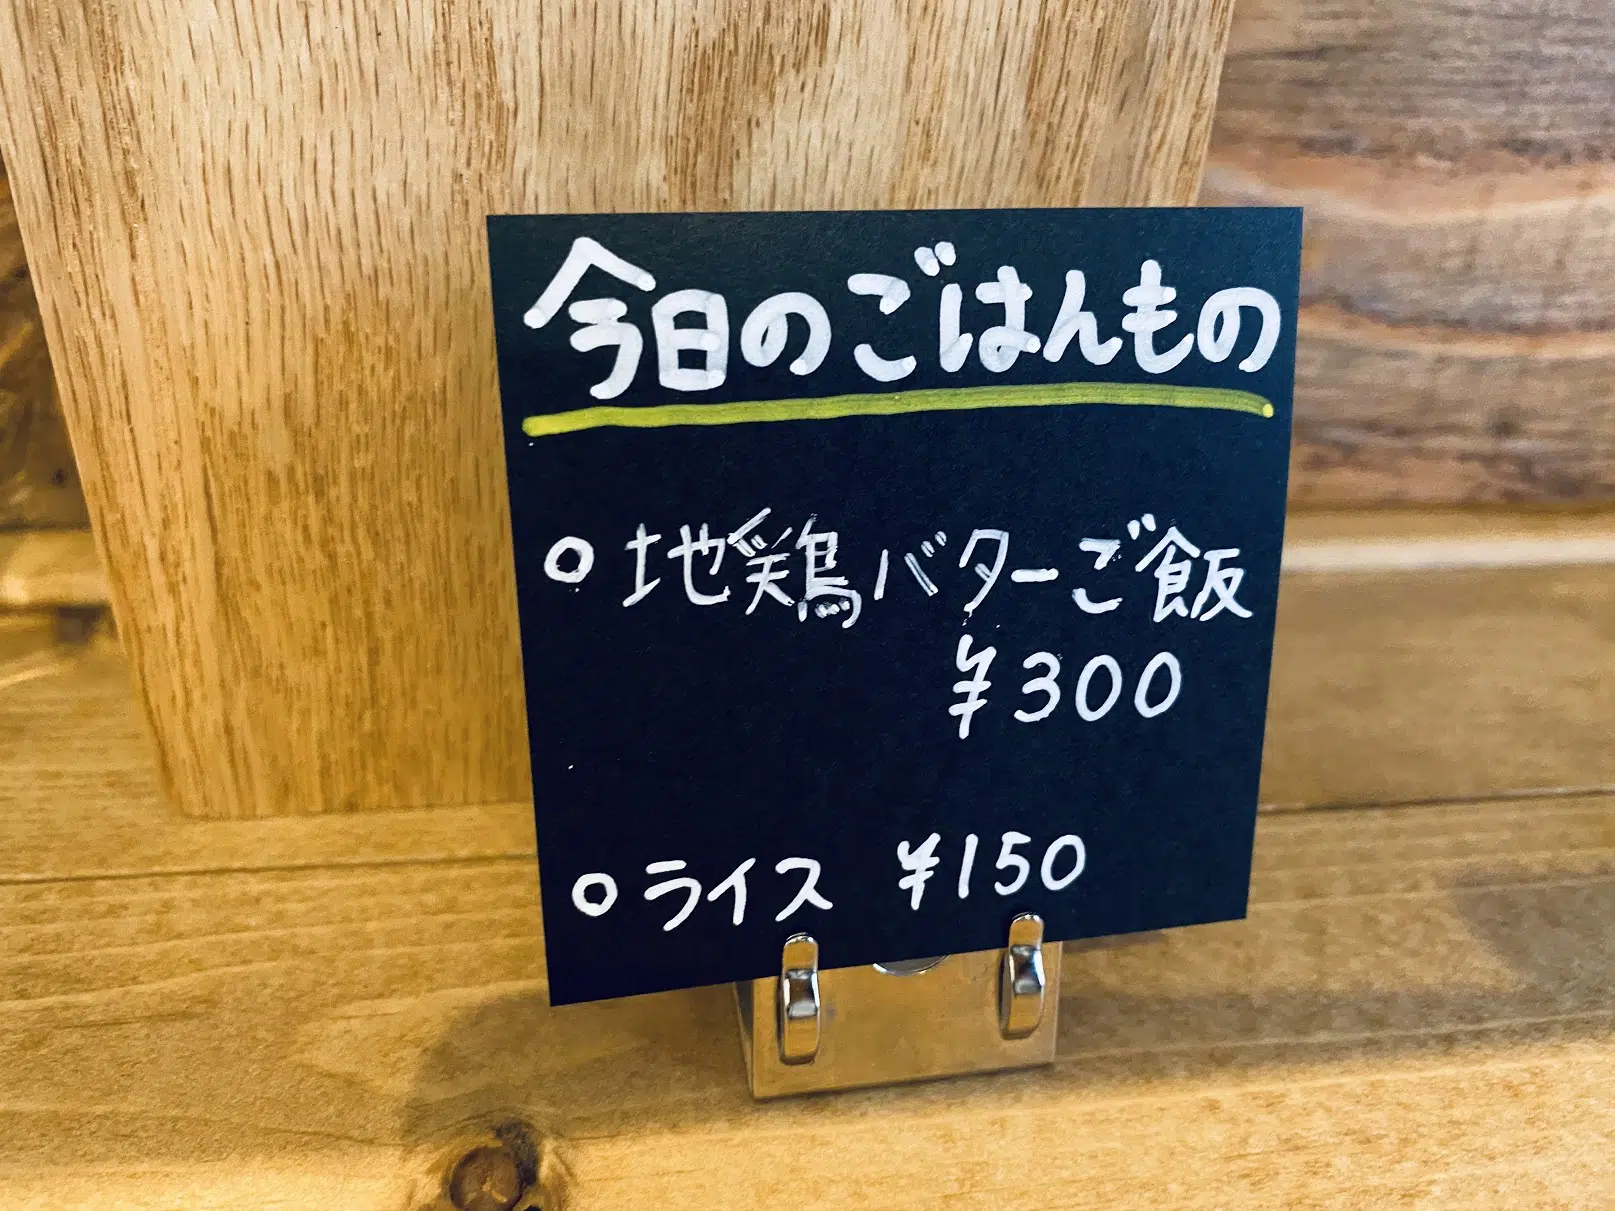 今日のごはんもの
○地鶏バターご飯
¥300
○ライス ¥150